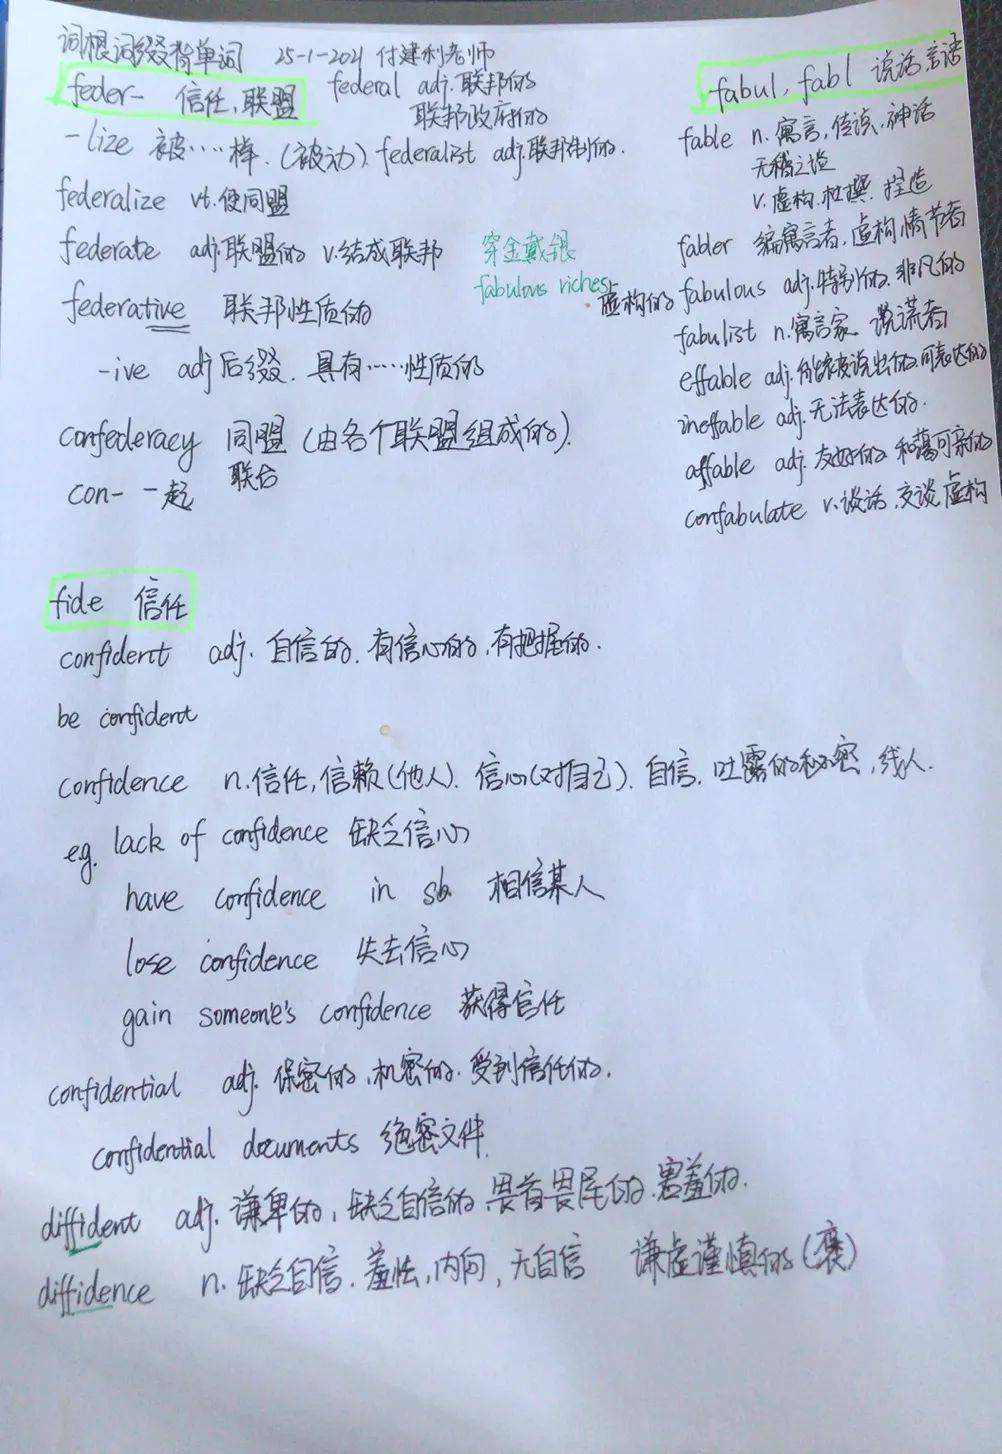 词根词缀背单词 25-1-2021 付建利老师
feder- 信任,联盟 federal adj.联邦的
联邦政府的
-lize 被……样.(被动) federalist adj.联邦制的.
federalize vt.使同盟
federate adj.联盟的 v.结成联邦
穿金戴银
fabulous riches
federative 联邦性质的
-ive adj后缀. 具有……性质的
confederacy 同盟 (由各个联盟组成的).
联合
con- 一起
fabul, fabl 说话 言语
fable n.寓言,传说.神话
无稽之谈
v.虚构.杜撰.捏造
fabler 编寓言者,虚构情节者
虚构的 fabulous adj.特别的.非凡的
fabulist n.寓言家.说谎者
effable adj.能被说出的.可表达的
ineffable adj.无法表达的.
affable adj.友好的 和蔼可亲的
confabulate v.谈话.交谈.虚构
fide 信任
confident adj. 自信的.有信心的,有把握的.
be confident
confidence n.信任,信赖(他人). 信心(对自己). 自信. 吐露的秘密,线人.
eg. lack of confidence 缺乏信心
have confidence in sb. 相信某人
lose confidence 失去信心
gain someone's confidence 获得信任
confidential adj. 保密的,机密的.受到信任的.
confidential documents 绝密文件.
diffident adj. 谦卑的,缺乏自信的.畏首畏尾的.害羞的.
diffidence n. 缺乏自信.羞怯,内向,无自信 谦虚谨慎的(褒)